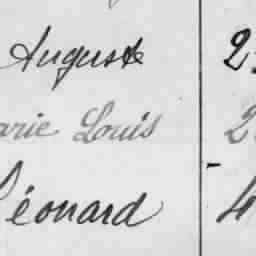 Auguste 2
arie Louis 2
Léonard 4